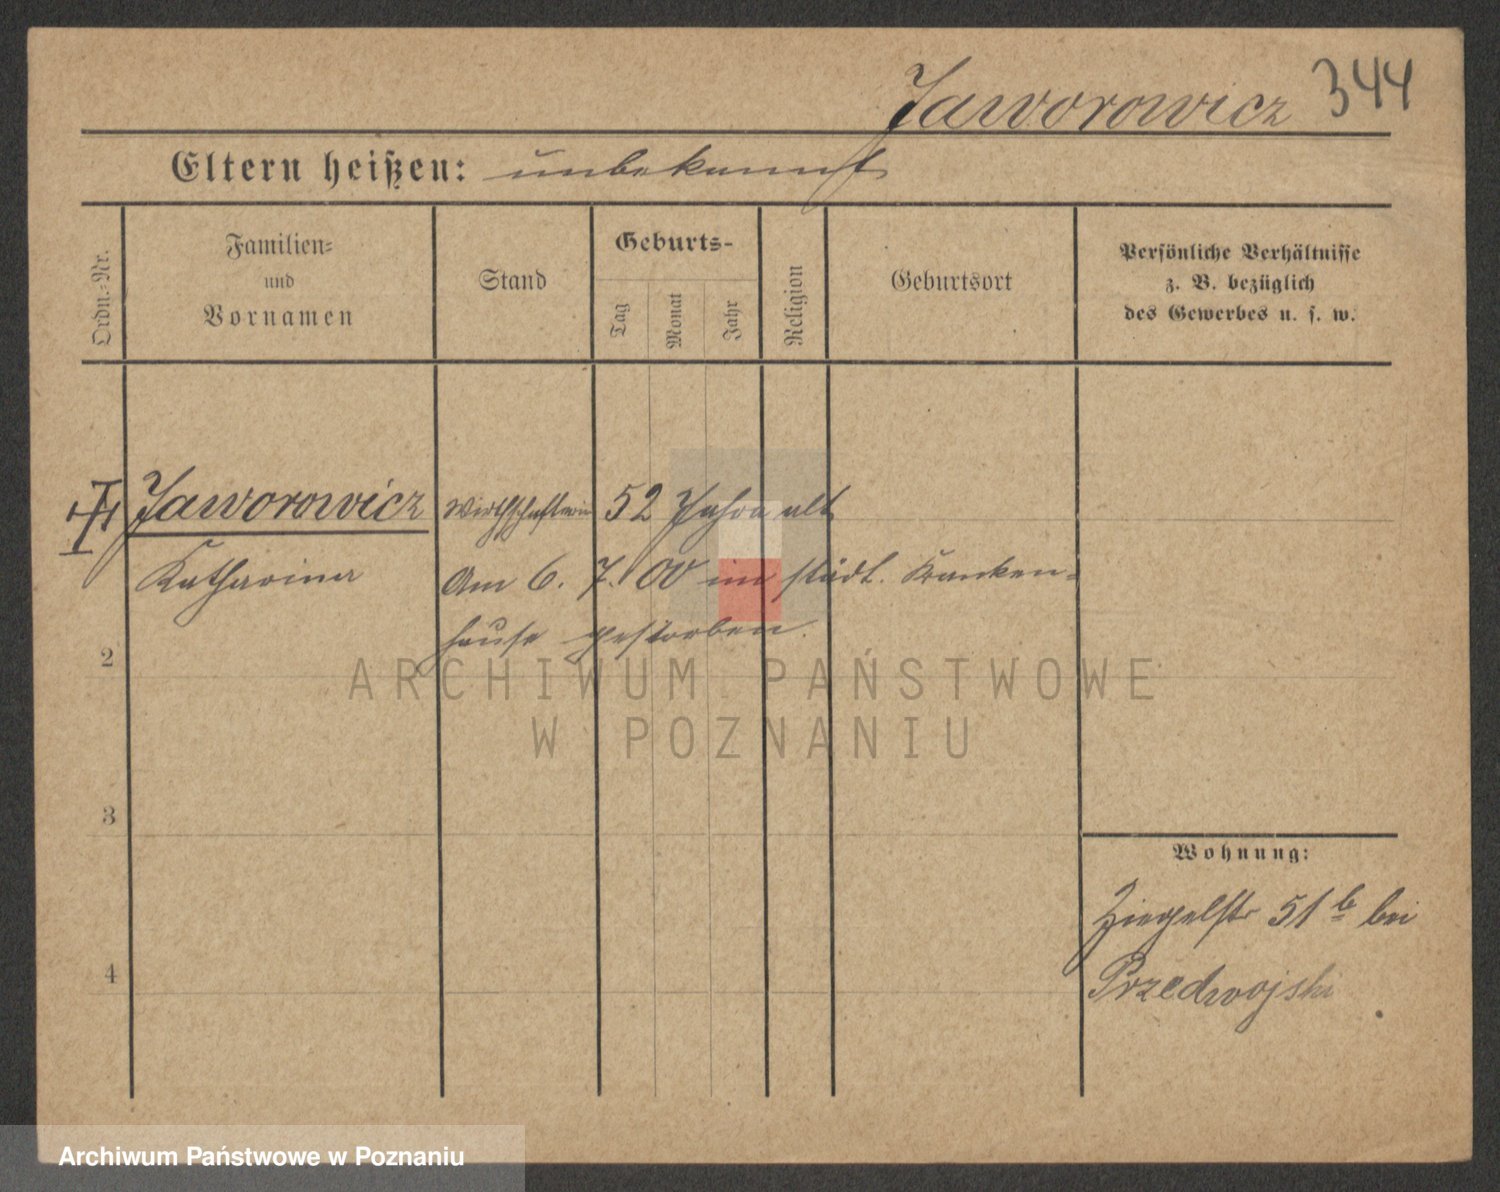 Jaworowicz 344
Eltern heißen: unbekannt
Ordn.-Nr.
Familien-
und
Vornamen
Stand
Geburts-
Tag
Monat
Jahr
Religion
Geburtsort
Persönliche Verhältnisse
z. B. bezüglich
des Gewerbes u. s. w.
Jaworowicz Wirthschafterin 52 Jahre alt
Katharina Am 6. 7. 00 im städt. Kranken-
hause gestorben.
2
ARCHIWUM PAŃSTWOWE
W POZNANIU
3
Wohnung:
Ziegelstr 51 b bei
4
Przedwojski
Archiwum Państwowe w Poznaniu